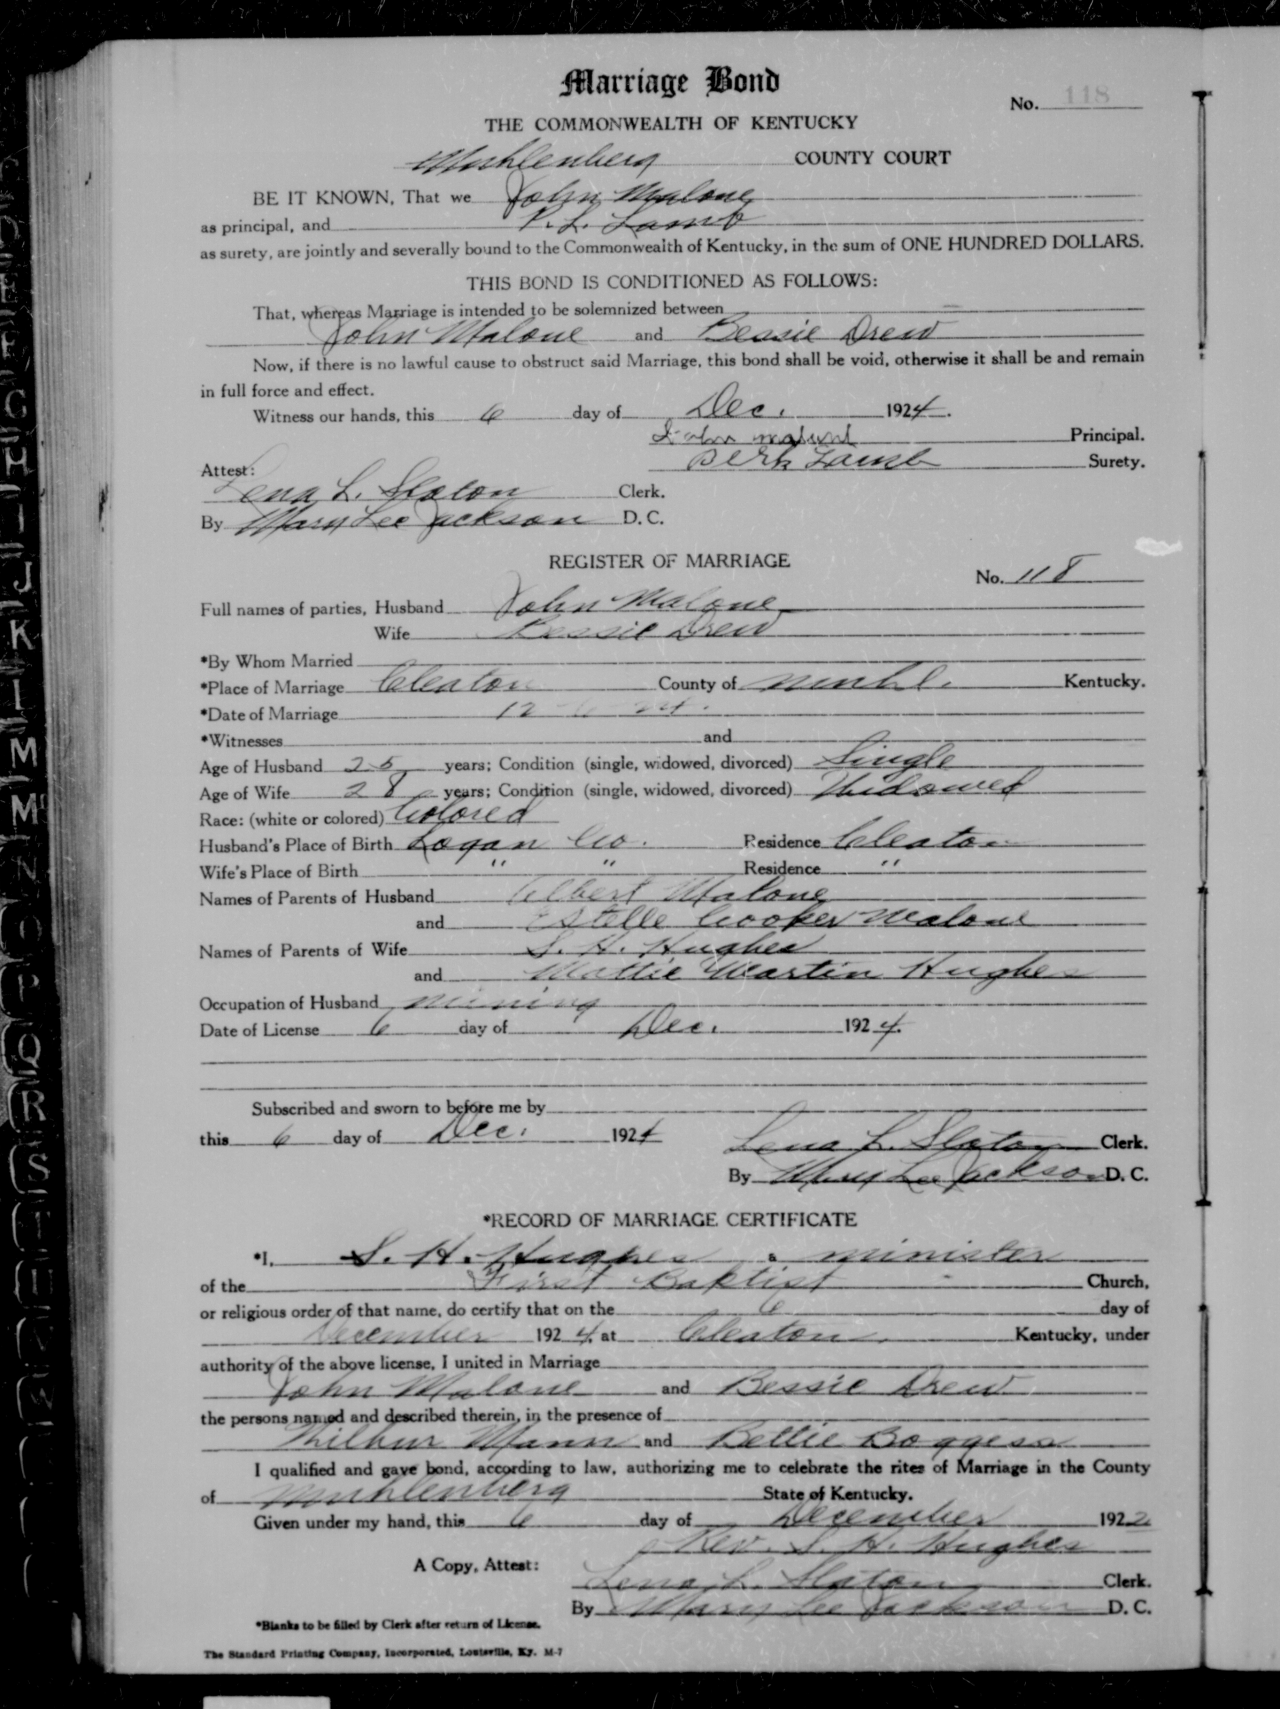 Marriage Bond
No. 118
THE COMMONWEALTH OF KENTUCKY
Muhlenberg COUNTY COURT
BE IT KNOWN, That we John Malone
as principal, and P. L. Lamb
as surety, are jointly and severally bound to the Commonwealth of Kentucky, in the sum of ONE HUNDRED DOLLARS.
THIS BOND IS CONDITIONED AS FOLLOWS:
That, whereas Marriage is intended to be solemnized between
John Malone and Bessie Drew
Now, if there is no lawful cause to obstruct said Marriage, this bond shall be void, otherwise it shall be and remain
in full force and effect.
Witness our hands, this 6 day of Dec. 1924.
John Principal.
Lamb Surety.
Attest:
Lena L. Slaton Clerk.
By Mary Lee Jackson D. C.
REGISTER OF MARRIAGE
No. 118
Full names of parties, Husband John Malone
Wife Bessie Drew
*By Whom Married
*Place of Marriage Cleaton County of Muhl. Kentucky.
*Date of Marriage 12-6-24.
*Witnesses and
Age of Husband 25 years; Condition (single, widowed, divorced) Single
Age of Wife 28 years; Condition (single, widowed, divorced) Widowed
Race: (white or colored) Colored
Husband's Place of Birth Logan Co. Residence Cleaton
Wife's Place of Birth " " Residence "
Names of Parents of Husband Albert Malone
and Estelle Cooker Malone
Names of Parents of Wife S. H. Hughes
and Mattie Martin Hughes
Occupation of Husband mining
Date of License 6 day of Dec. 1924.
Subscribed and sworn to before me by
this 6 day of Dec. 1924
Lena L. Slaton Clerk.
By Mary Lee Jackson D. C.
*RECORD OF MARRIAGE CERTIFICATE
*I, S. H. Hughes a minister
of the First Baptist Church,
or religious order of that name, do certify that on the 6 day of
December 1924 at Cleaton Kentucky, under
authority of the above license, I united in Marriage
John Malone and Bessie Drew
the persons named and described therein, in the presence of
Wilbur Mann and Bettie Boggess
I qualified and gave bond, according to law, authorizing me to celebrate the rites of Marriage in the County
of Muhlenberg State of Kentucky.
Given under my hand, this 6 day of December 1922
Rev. S. H. Hughes
A Copy, Attest:
Lena L. Slaton Clerk.
By Mary Lee Jackson D. C.
*Blanks to be filled by Clerk after return of License.
The Standard Printing Company, Incorporated, Louisville, Ky. M-7
G
H
I
J
K
L
M
M
N
O
P
Q
R
S
T